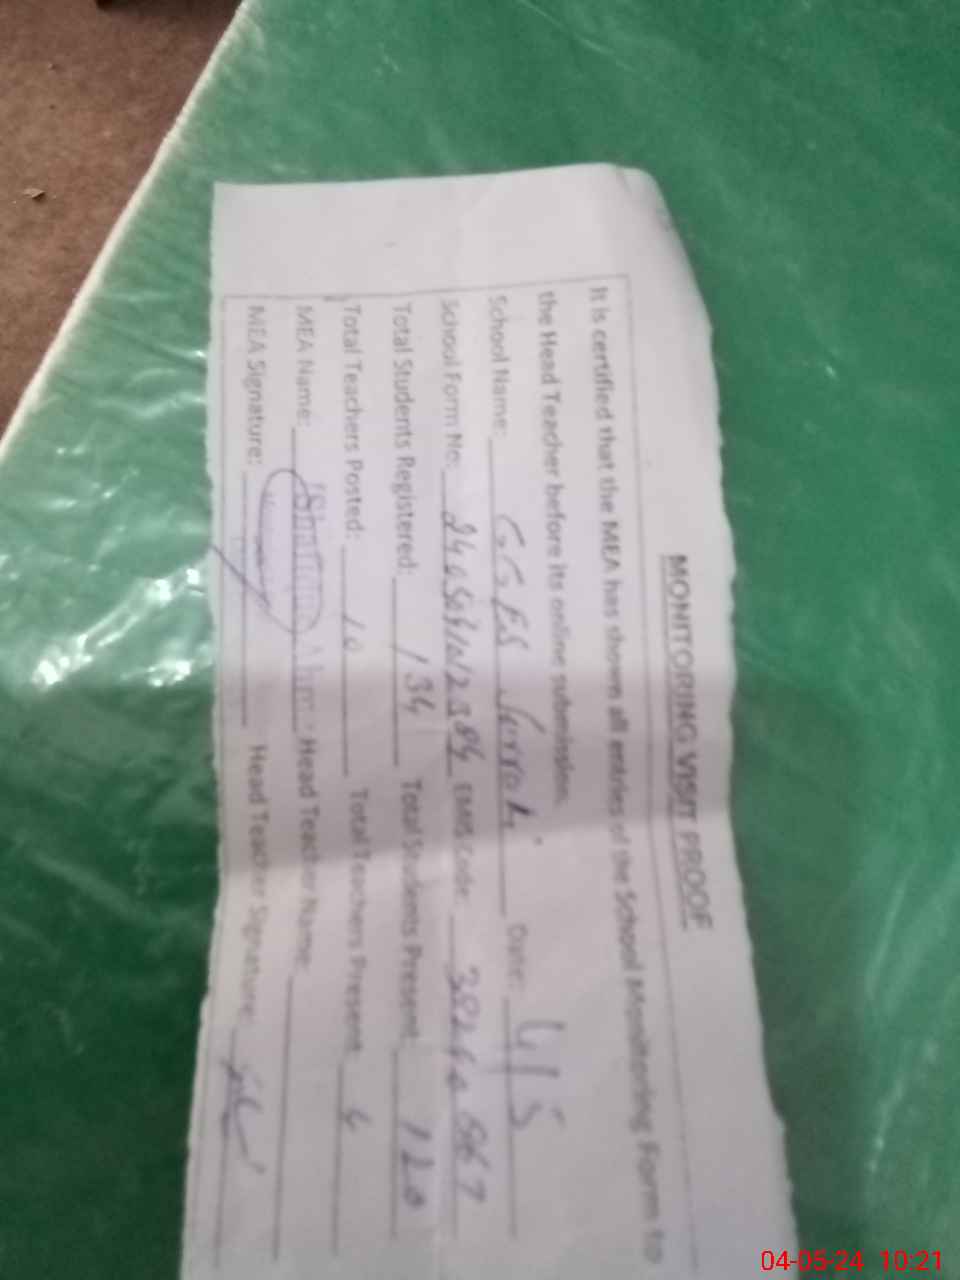 MONITORING VISIT PROOF
It is certified that the MEA has shown all entries of the School Monitoring Form to
the Head Teacher before its online submission.
School Name: GGES Date: 4/5
School Form No: EMIS Code:
Total Students Registered: 134 Total Students Present: 120
Total Teachers Posted: 10 Total Teachers Present:
MEA Name: Head Teacher Name:
MEA Signature: Head Teacher Signature:
04-05-24 10:21